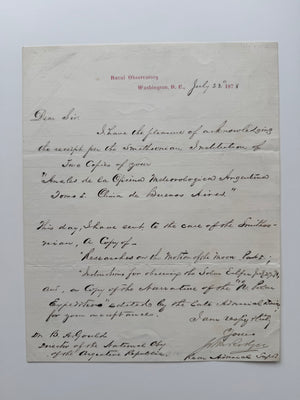 Naval Observatory
Washington, D. C., July 23d 1878
Dear Sir
I have the pleasure of acknowledging
the receipt per the Smithsonian Institution of
Two Copies of your
"Anales de la Oficina Meteorologica Argentina
Tomo 1. Clima de Buenos Aires."
This day, I have sent to the care of the Smithso-
nian, a Copy of—
"Researches on the Motion of the Moon Part 1;
"Instructions for observing the Solar Eclipse July 29, 78,
and, a Copy of the Narrative of the "N. Polar
Expedition" edited by the Late Admiral Davis
for your acceptance.
I am respectfully
Yours
Jno Rodgers
Rear Admiral Supt
Mr B. A. Gould
Director of the National Oby
of the Argentine Republic.